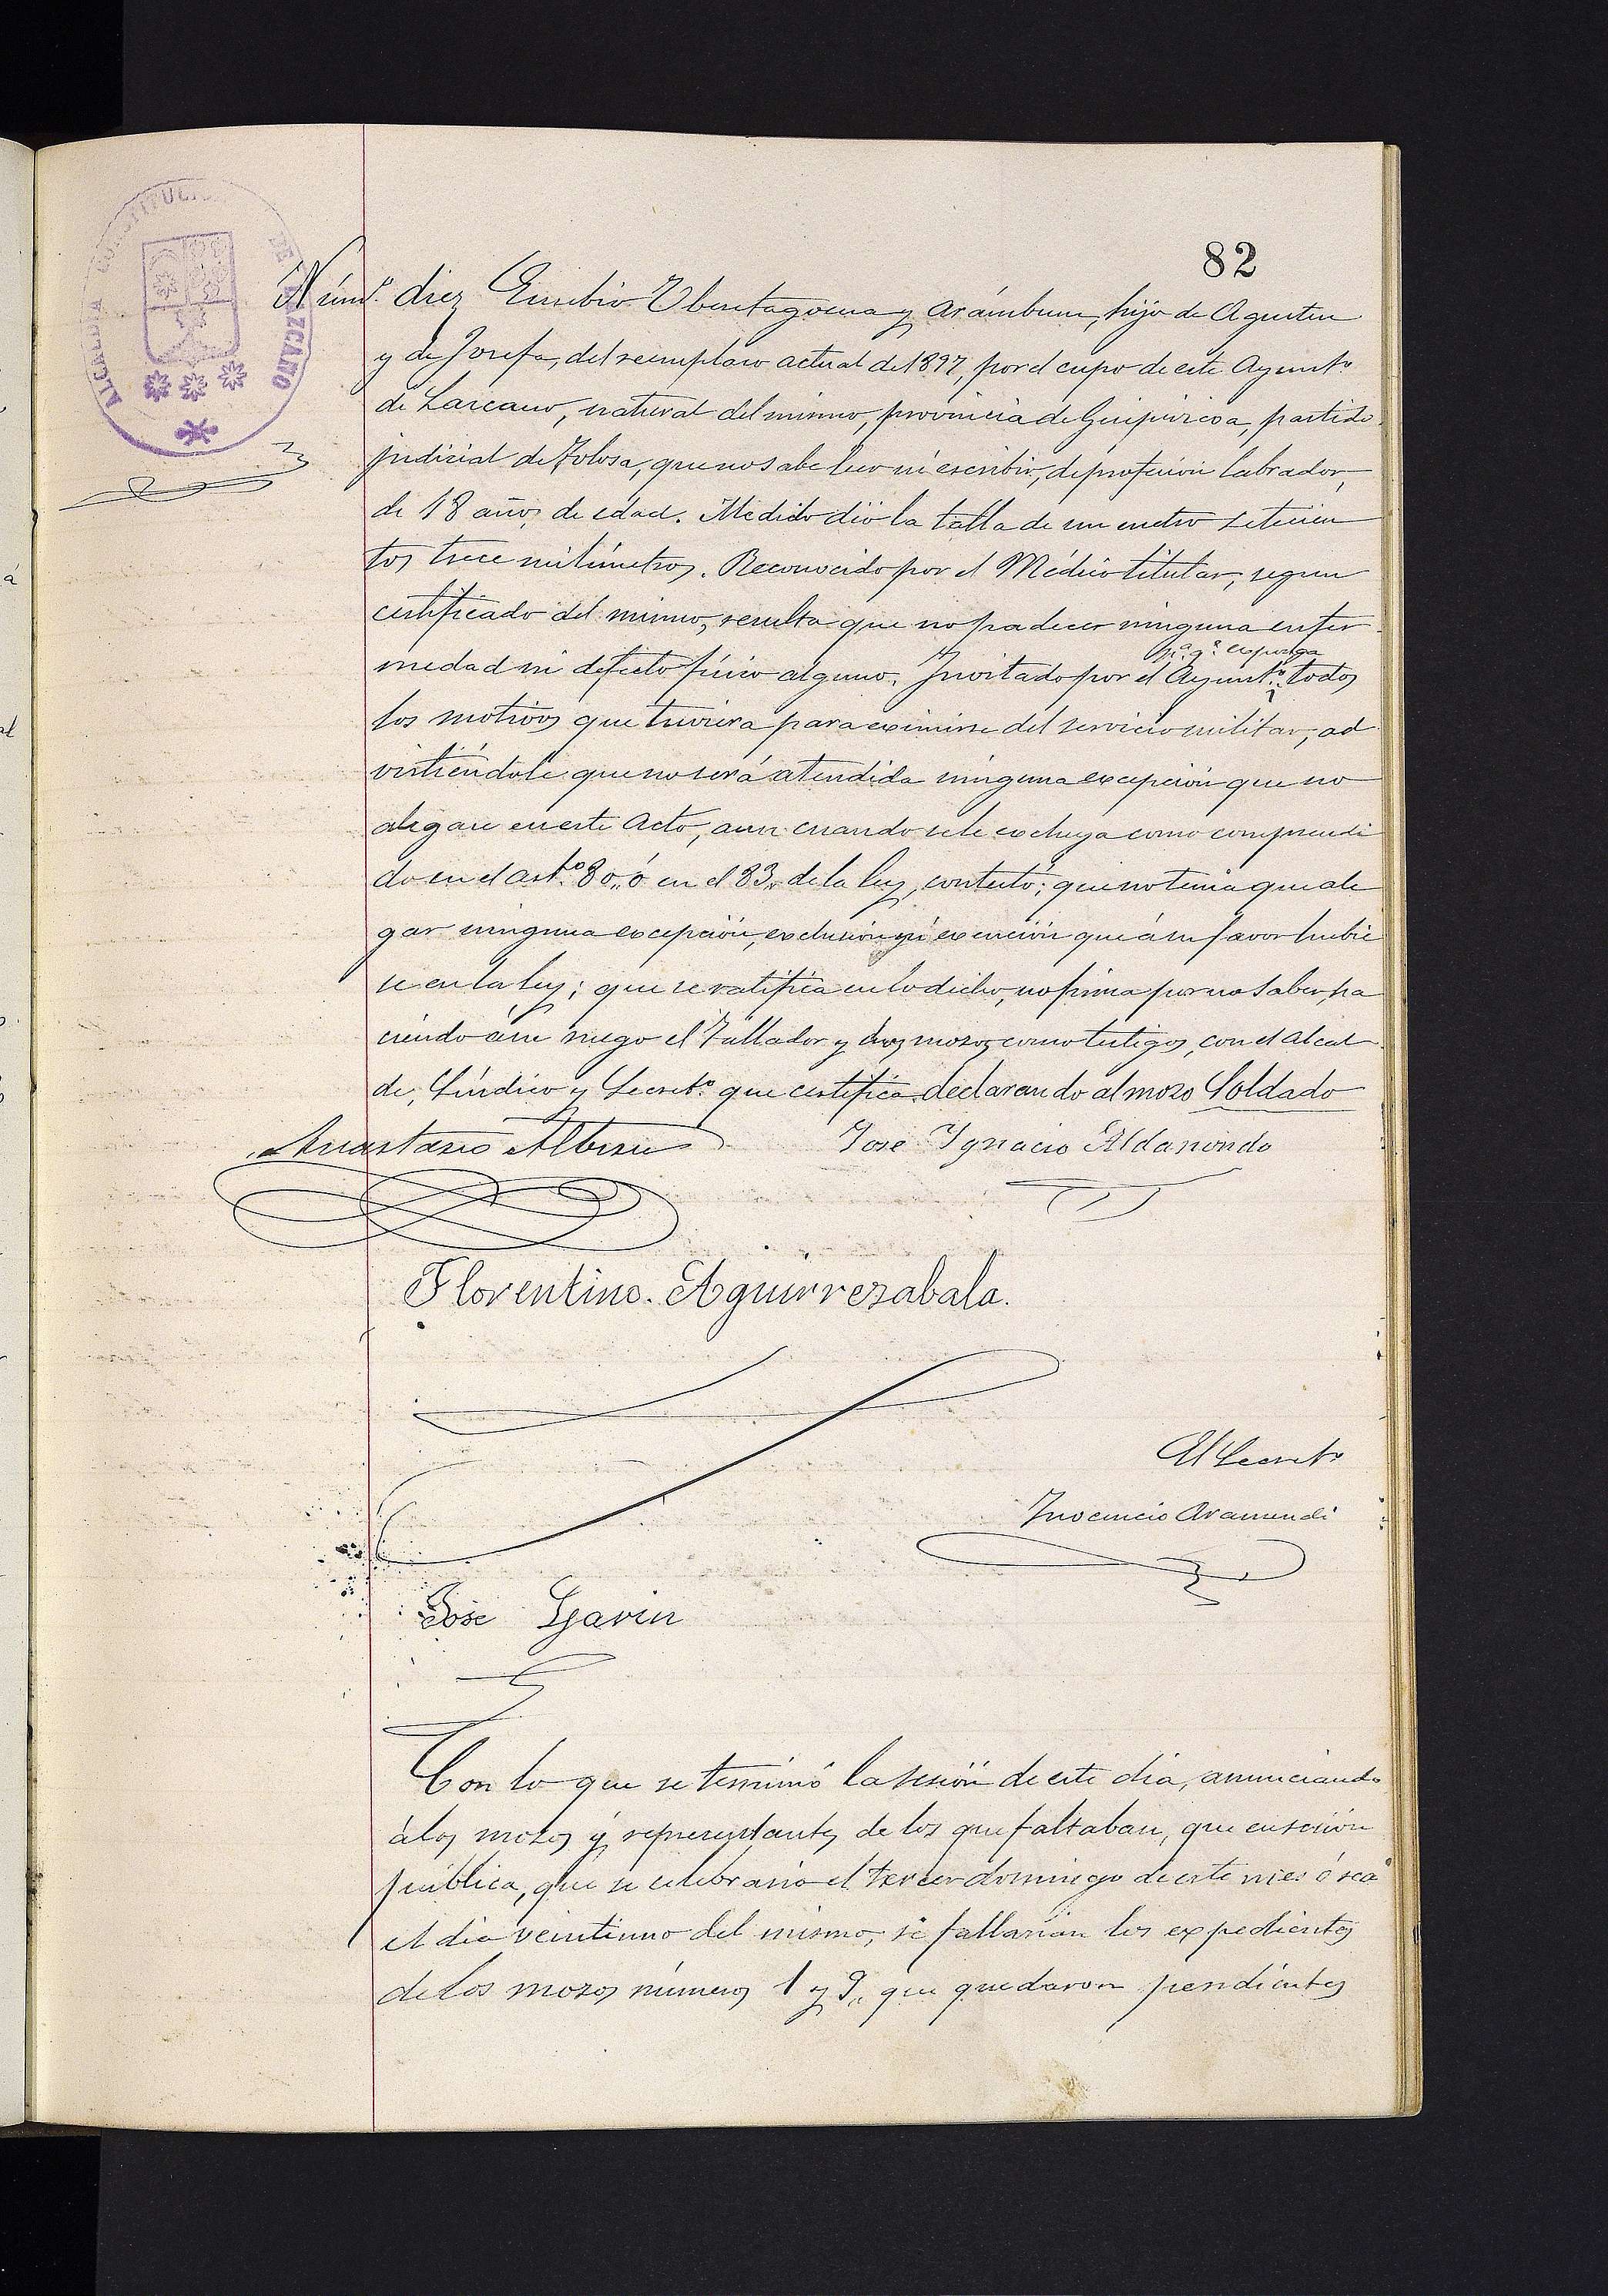 82
ALCALDIA CONSTITUCIONAL DE LAZCANO
Núm.º diez Eusebio Yberetagoena y Arámburu, hijo de Agustin
y de Josefa, del reemplazo actual de 1897, por el cupo de este Ayunt.º
de Lazcano, natural del mismo, provincia de Guipúzcoa, partido
judicial de Tolosa, que no sabe leer ni escribir, de profesión labrador,
de 18 años de edad. Medido dió la talla de un metro setecien
tos trece milímetros. Reconocido por el Médico titular, segun
certificado del mismo, resulta que no padecer ninguna enfer
medad ni defecto físico alguno. Invitado por el Ayunt.º p.ª q.e exponga todos
los motivos que tuviera para eximirse del servicio militar, ad
virtiéndole que no será atendida ninguna excepción que no
alegare en este acto, aun cuando se le excluya como comprendi
do en el art.º 80,, ó en el 83,, de la ley, contestó; que no tenia que ale
gar ninguna excepción, exclusión ni exención que á su favor hubie
se en la ley; que se ratifica en lo dicho, no firma por no saber, ha
ciendo á su ruego el Tallador y dos mozos como testigos, con el Alcal
de, Síndico y Secret.º que certifica. declarando al mozo Soldado
Anastasio Albisu José Ygnacio Aldanondo
Florentino. Aguirrezabala.
El Secret.º
Inocencio Aramendi
José Gavin
Con lo que se terminó la sesión de este dia, anunciando
á los mozos y representantes de los que faltaban, que en sesión
pública, que se celebraria el tercer domingo de este mes ó sea
el dia veintiuno del mismo, se fallarían los expedientes
de los mozos números 1 y 9,, que quedaron pendientes